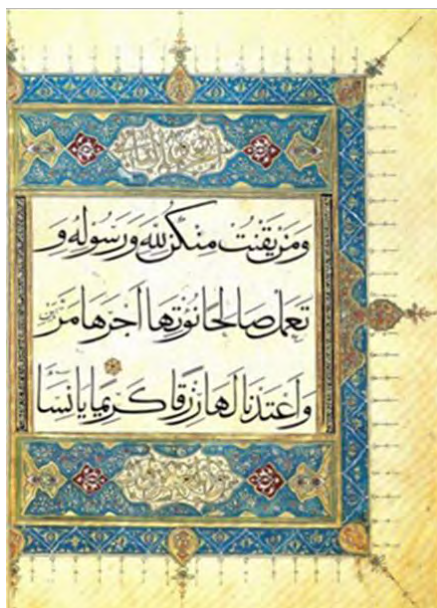 وَمَنْ يَقْنُتْ مِنْكُنَّ لِلّٰهِ وَرَسُولِهِ وَ
تَعْمَلْ صَالِحًا نُؤْتِهَا أَجْرَهَا مَرَّتَيْنِ
وَأَعْتَدْنَا لَهَا رِزْقًا كَرِيمًا يَا نِسَا